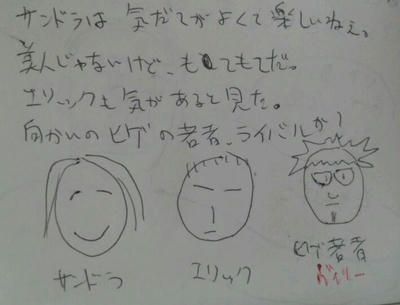 サンドラは 気だてがよくて楽しいねぇ。
美人じゃないけど、もてもてだ。
エリックも気があると見た。
向かいのヒゲの若者、ライバルか?
サンドラ
エリック
ヒゲ若者
ゲイリー